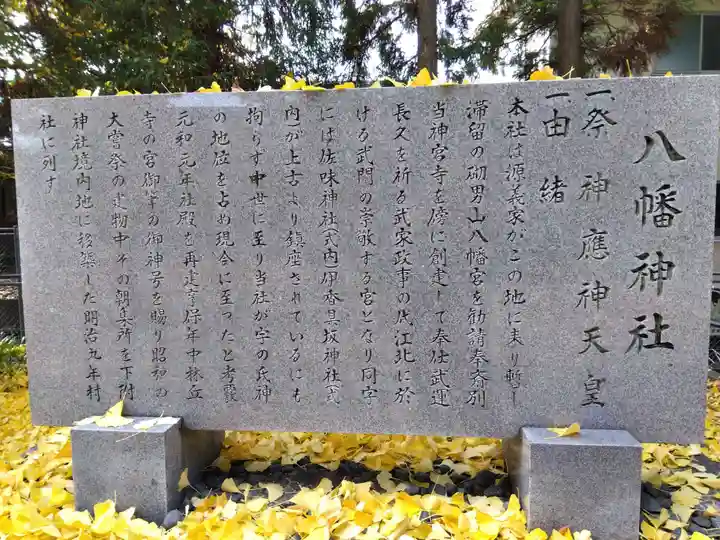 八幡神社
一祭 神應神天皇
一由 緒
本社は源義家がこの地に来り暫し
滞留の砌男山八幡宮を勧請奉斎別
当神宮寺を傍に創建して奉仕武運
長久を祈る武家政事の代江北に於
ける武門の崇敬する宮となり同字
には佐味神社(式内)伊香具坂神社(式
内)が上古より鎮座されているにも
拘らず中世に至り当社が字の氏神
の地位を占め現今に至ったと考證
元和元年社殿を再建享保年中林丘
寺の宮御筆の御神号を賜り昭和の
大嘗祭の建物中その朝集所を下附
神社境内地に移築した明治九年村
社に列す